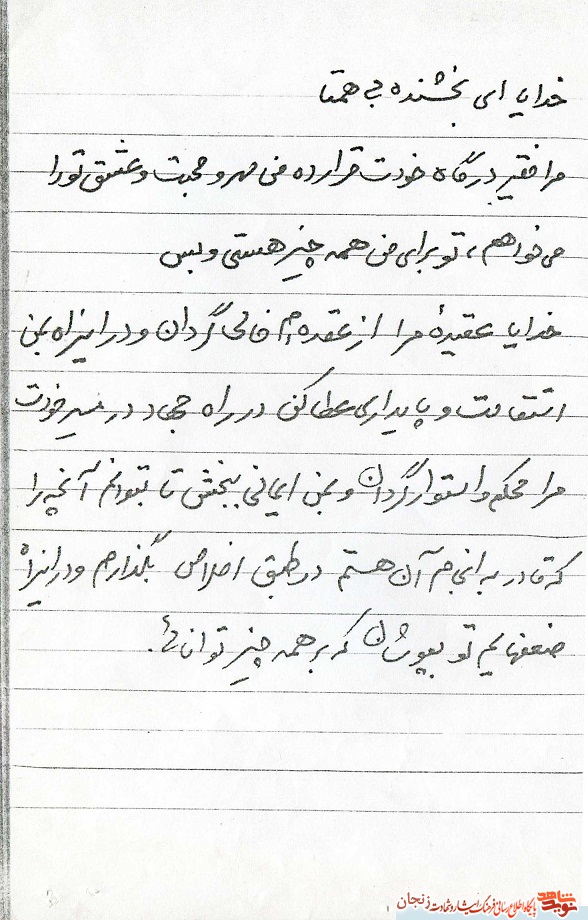 خدایا ای بخشنده بی همتا
مرا فقیر درگاه خودت قرار ده من مهر و محبت و عشق تو را
می خواهم ، تو برای من همه چیز هستی و بس
خدایا عقیدهٔ مرا از عقده ام خالی گردان و در اینراه بمن
استقامت و پایداری عطا کن در راه جهاد در مسیر خودت
مرا محکم و استوار گردان و بمن ایمانی ببخش تا بتوانم آنچه را
که قادر به انجام آن هستم در طبق اخلاص بگذارم و در اینراه
ضعفهایم تو بپوشان که بر همه چیز توانائی.
نوید شاهد
پایگاه اطلاع رسانی فرهنگ ایثار و شهادت زنجان